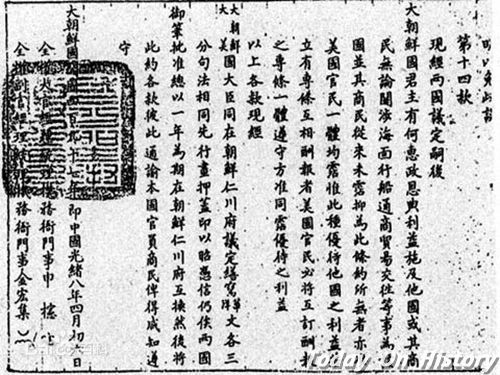 明以免
第十四款
現經兩國議定嗣後
大朝鮮國君主有何惠政恩典利益施及他國或其商
民無論關涉海面行船通商貿易交往等事為
國並其商民從來未霑抑為此條約所無者亦
美國官民一體均霑惟此種優待他國之利益
立有專條互相酬報者美國官民必將互訂酬報
之專條一體遵守方准同霑優待之利益
以上各款現經
大朝鮮國
大美國大臣同在朝鮮仁川府議定繕寫華洋文各三
分句法相同先行畫押蓋印以昭憑信仍俟兩國
御筆批准總以一年為期在朝鮮仁川府互換然後將
此約各款彼此通諭本國官員商民俾得咸知遵
守
大朝鮮國開國四百九十一年即中國光緒八年四月初六日
全權大官經理統理機務衙門事申櫶
全權副官經理統理機務衙門事金宏集
Today On History